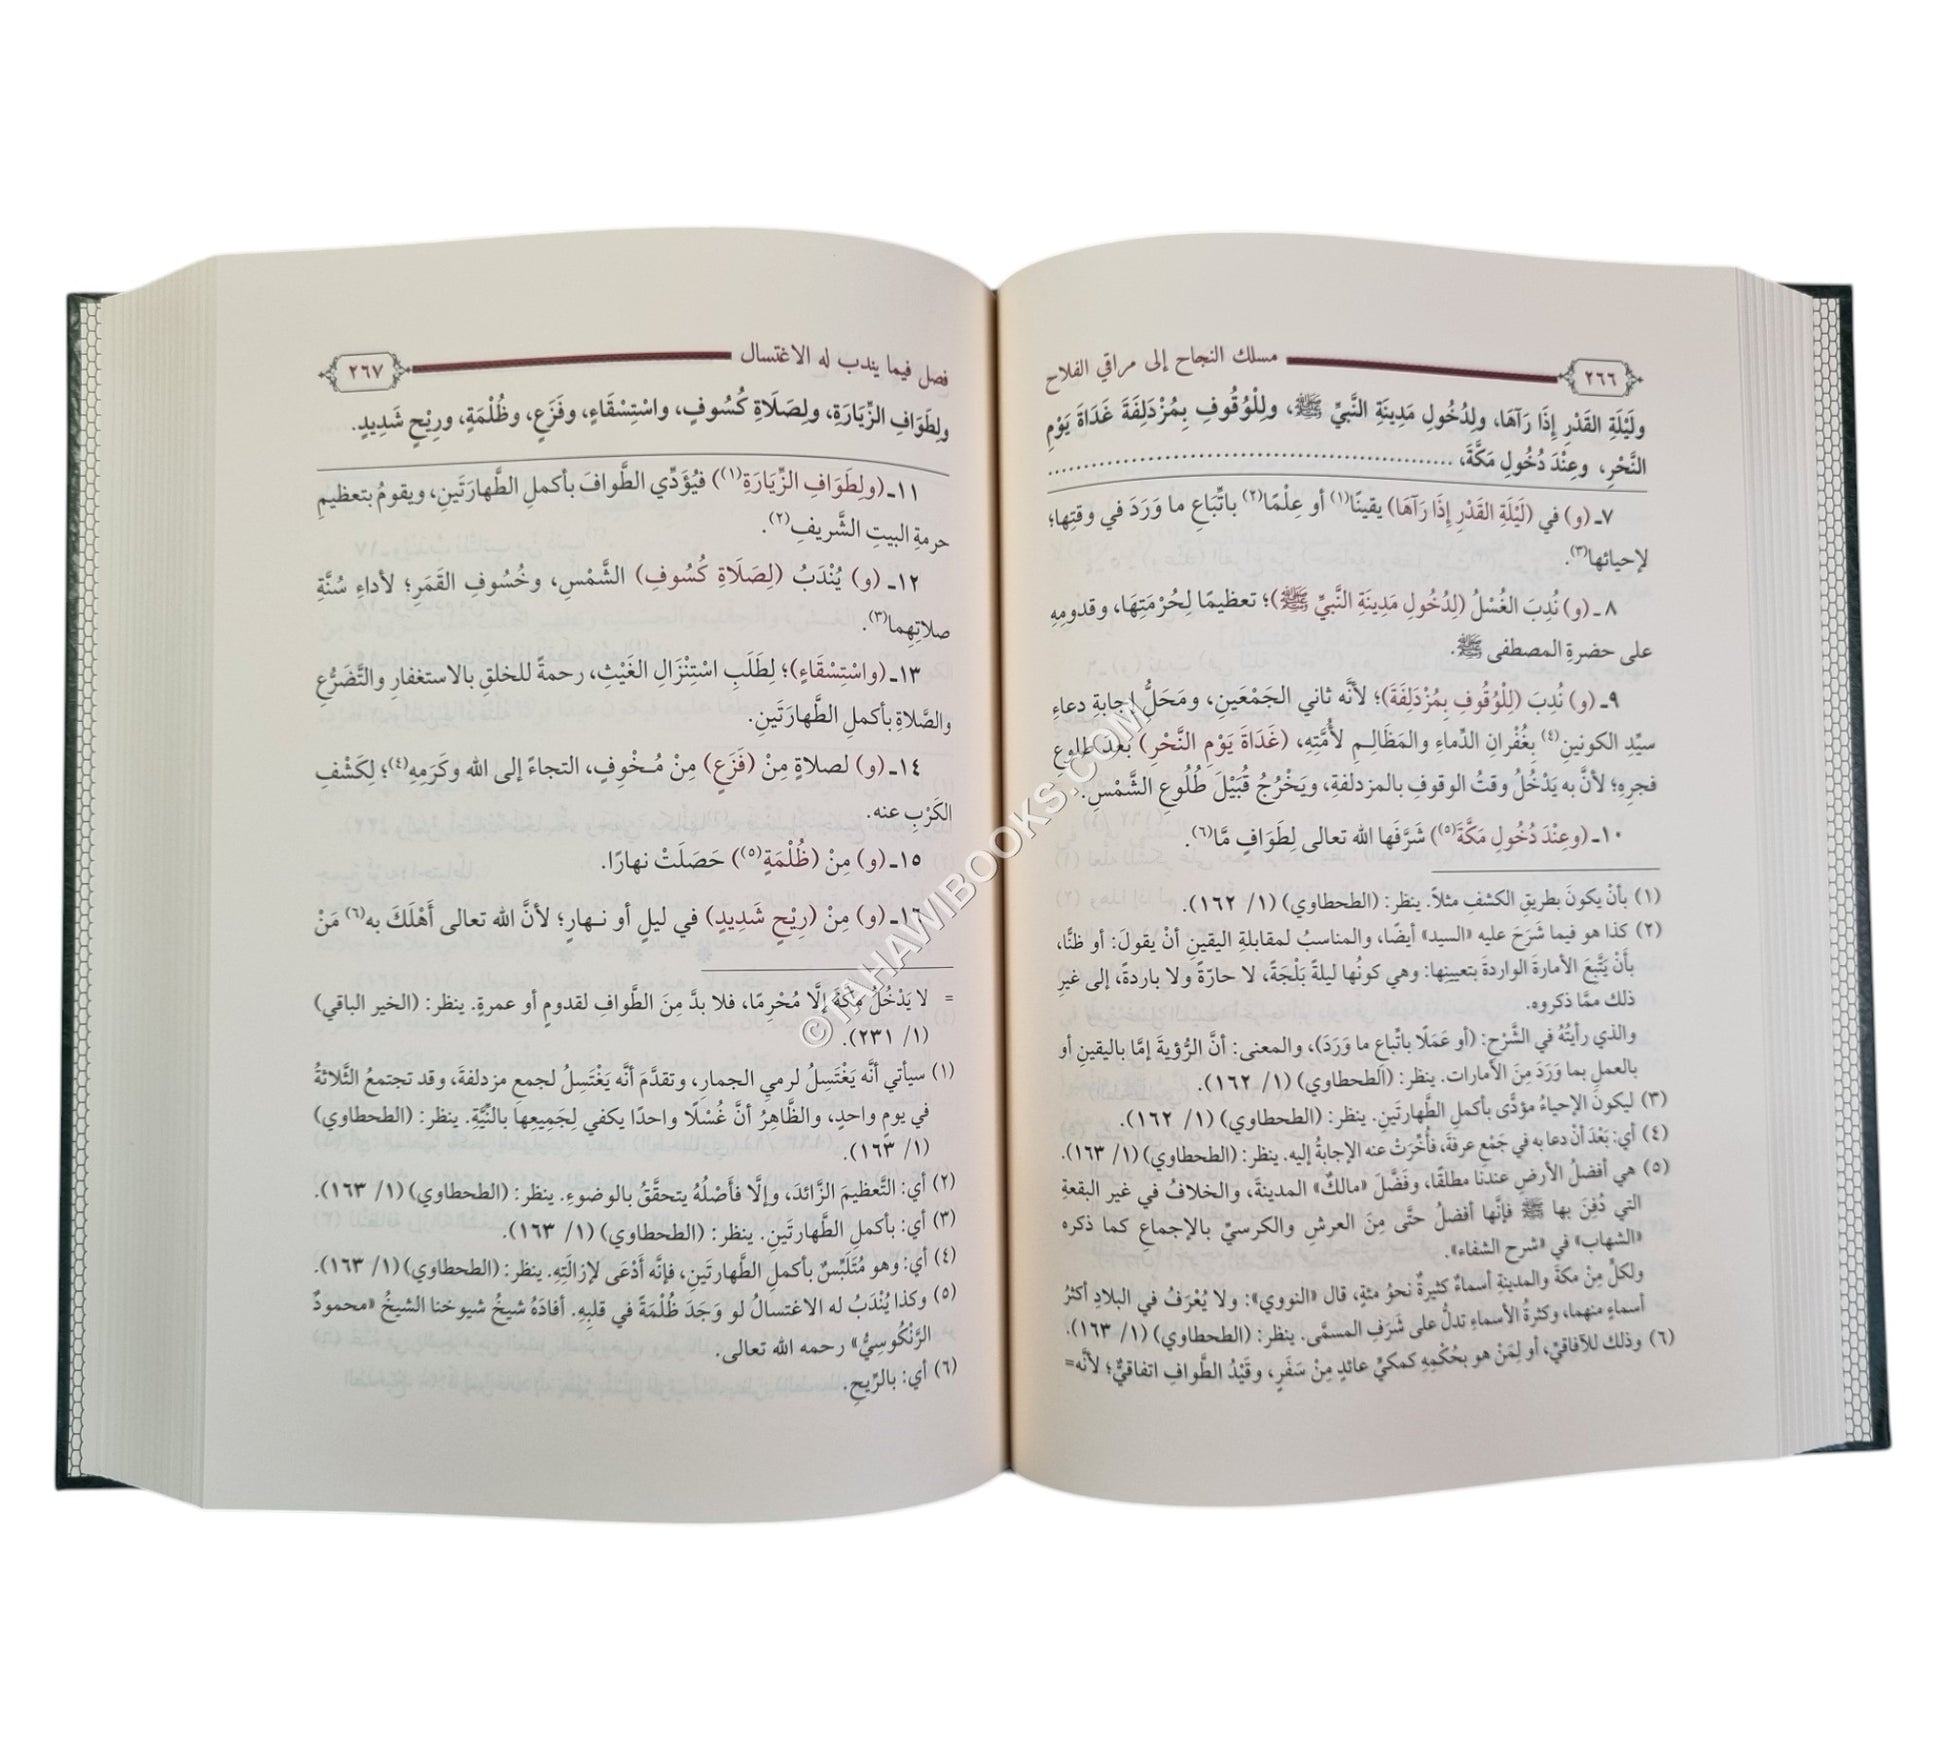 ٢٦٦ مسلك النجاح إلى مراقي الفلاح
ولَيْلَةِ القَدْرِ إِذَا رَآهَا، ولِدُخُولِ مَدِينَةِ النَّبيِّ ﷺ، وللْوُقُوفِ بِمُزْدَلِفَةَ غَدَاةَ يَوْمِ
النَّحْرِ، وعِنْدَ دُخُولِ مَكَّةَ، ........................................................
٧ـ (و) في (لَيْلَةِ القَدْرِ إِذَا رَآهَا) يقينًا(١) أو عِلْمًا(٢) باتِّبَاعِ ما وَرَدَ في وقتِها؛
لإحيائها(٣).
٨ـ (و) نُدِبَ الغُسْلُ (لِدُخُولِ مَدِينَةِ النَّبيِّ ﷺ)؛ تعظيمًا لِحُرْمَتِهَا، وقدومِهِ
على حضرةِ المصطفى ﷺ.
٩ـ (و) نُدِبَ (لِلْوُقُوفِ بِمُزْدَلِفَةَ)؛ لأنَّه ثاني الجَمْعَينِ، ومَحَلُّ إجابةِ دعاءِ
سيِّدِ الكونينِ(٤) بِغُفْرانِ الدِّماءِ والمَظَالِمِ لأُمَّتِهِ، (غَدَاةَ يَوْمِ النَّحْرِ) بعدَ طلوعِ
فجرِهِ؛ لأنَّ به يَدْخُلُ وقتُ الوقوفِ بالمزدلفةِ، ويَخْرُجُ قُبَيْلَ طُلُوعِ الشَّمْسِ.
١٠ـ (وعِنْدَ دُخُولِ مَكَّةَ(٥)) شَرَّفَها الله تعالى لِطَوَافٍ مَّا(٦).
(١) بأنْ يكونَ بطريقِ الكشفِ مثلاً. ينظر: (الطحطاوي) (١/ ١٦٢).
(٢) كذا هو فيما شَرَحَ عليه «السيد» أيضًا، والمناسبُ لمقابلةِ اليقينِ أنْ يقولَ: أو ظنًّا،
بأنْ يَتَّبِعَ الأمارةَ الواردةَ بتعيينِها: وهي كونُها ليلةً بَلْجَةً، لا حارّةً ولا باردةً، إلى غيرِ
ذلك ممَّا ذكروه.
والذي رأيتُهُ في الشَّرْحِ: (أو عَمَلًا باتِّباعِ ما وَرَدَ)، والمعنى: أنَّ الرُّؤيةَ إمَّا باليقينِ أو
بالعملِ بما وَرَدَ مِنَ الأمارات. ينظر: (الطحطاوي) (١/ ١٦٢).
(٣) ليكونَ الإحياءُ مؤدًّى بأكملِ الطَّهارتَينِ. ينظر: (الطحطاوي) (١/ ١٦٢).
(٤) أي: بَعْدَ أنْ دعا به في جَمْعِ عرفةَ، فأُخِّرَتْ عنه الإجابةُ إليه. ينظر: (الطحطاوي) (١/ ١٦٣).
(٥) هي أفضلُ الأرضِ عندَنا مطلقًا، وفَضَّلَ «مالكٌ» المدينةَ، والخلافُ في غيرِ البقعةِ
التي دُفِنَ بها ﷺ فإنَّها أفضلُ حتَّى مِنَ العرشِ والكرسيِّ بالإجماعِ كما ذكره
«الشهاب» في «شرح الشفاء».
ولكلٍّ مِنْ مكةَ والمدينةِ أسماءٌ كثيرةٌ نحوُ مئةٍ، قال «النووي»: ولا يُعْرَفُ في البلادِ أكثرُ
أسماءٍ منهما، وكثرةُ الأسماءِ تدلُّ على شَرَفِ المسمَّى. ينظر: (الطحطاوي) (١/ ١٦٣).
(٦) وذلك للآفاقيِّ، أو لِمَنْ هو بحُكْمِهِ كمكيٍّ عائدٍ مِنْ سَفَرٍ، وقَيْدُ الطَّوافِ اتفاقيٌّ؛ لأنَّه=
فصل فيما يندب له الاغتسال ٢٦٧
ولِطَوَافِ الزِّيَارَةِ، ولِصَلَاةِ كُسُوفٍ، واسْتِسْقَاءٍ، وفَزَعٍ، وظُلْمَةٍ، ورِيْحٍ شَدِيدٍ.
١١ـ (ولِطَوَافِ الزِّيَارَةِ(١)) فيُؤَدِّي الطَّوافَ بأكملِ الطَّهارَتَينِ، ويقومُ بتعظيمِ
حرمةِ البيتِ الشَّريفِ(٢).
١٢ـ (و) يُنْدَبُ (لِصَلَاةِ كُسُوفِ) الشَّمْسِ، وخُسُوفِ القَمَرِ؛ لأداءِ سُنَّةِ
صلاتِهِما(٣).
١٣ـ (واسْتِسْقَاءٍ)؛ لِطَلَبِ اسْتِنْزَالِ الغَيْثِ، رحمةً للخلقِ بالاستغفارِ والتَّضَرُّعِ
والصَّلاةِ بأكملِ الطَّهارَتَينِ.
١٤ـ (و) لصلاةٍ مِنْ (فَزَعٍ) مِنْ مُخْوِفٍ، التجاءً إلى الله وكَرَمِهِ(٤)؛ لِكَشْفِ
الكَرْبِ عنه.
١٥ـ (و) مِنْ (ظُلْمَةٍ(٥)) حَصَلَتْ نهارًا.
١٦ـ (و) مِنْ (رِيْحٍ شَدِيدٍ) في ليلٍ أو نهارٍ؛ لأنَّ الله تعالى أَهْلَكَ به(٦) مَنْ
= لا يَدْخُلُ مكةَ إلَّا مُحْرِمًا، فلا بدَّ مِنَ الطَّوافِ لقدومٍ أو عمرةٍ. ينظر: (الخير الباقي)
(١/ ٢٣١).
(١) سيأتي أنَّه يَغْتَسِلُ لرميِ الجمارِ، وتقدَّمَ أنَّه يَغْتَسِلُ لجمعِ مزدلفةَ، وقد تجتمعُ الثَّلاثةُ
في يومٍ واحدٍ، والظَّاهِرُ أنَّ غُسْلًا واحدًا يكفي لِجَمِيعِها بالنِّيَّةِ. ينظر: (الطحطاوي)
(١/ ١٦٣).
(٢) أي: التَّعظيمَ الزَّائدَ، وإلَّا فأَصْلُهُ يتحقَّقُ بالوضوءِ. ينظر: (الطحطاوي) (١/ ١٦٣).
(٣) أي: بأكملِ الطَّهارتَينِ. ينظر: (الطحطاوي) (١/ ١٦٣).
(٤) أي: وهو مُتَلَبِّسٌ بأكملِ الطَّهارتَينِ، فإنَّه أَدْعَى لإزالَتِهِ. ينظر: (الطحطاوي) (١/ ١٦٣).
(٥) وكذا يُنْدَبُ له الاغتسالُ لو وَجَدَ ظُلْمَةً في قلبِهِ. أفادَهُ شيخُ شيوخنا الشيخُ «محمودٌ
الرَّنْكُوسِيُّ» رحمه الله تعالى.
(٦) أي: بالرِّيحِ.
© TAHAWIBOOKS.COM